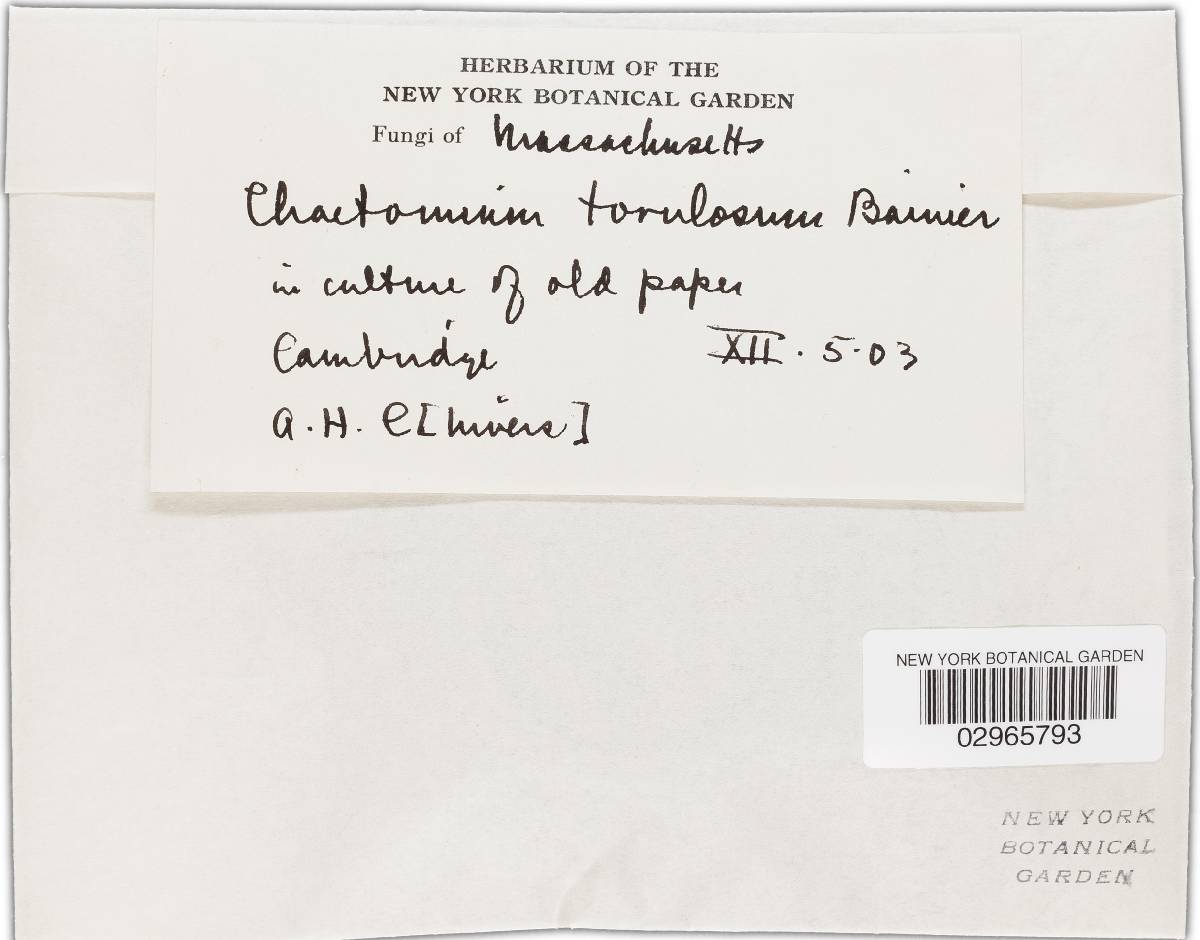 HERBARIUM OF THE
NEW YORK BOTANICAL GARDEN
Fungi of Massachusetts
Chaetomium torulosum Bainier
in culture of old paper
Cambridge XII. 5-03
A. H. C[hivers]
NEW YORK BOTANICAL GARDEN
02965793
NEW YORK
BOTANICAL
GARDEN